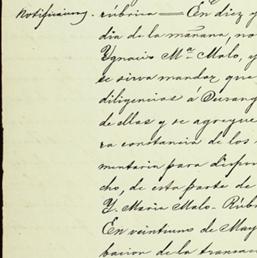 Notificacion. rúbrica — En diez y
dia de la mañana, no
Ygnacio Mª Malo, y
se sirva mandar que
diligencias á Durang
de ellas y se agregue
ra constancia de los
mentaria para dispo
cho, de esta parte de
Y. Maria Malo - Rúbri
En veintiuno de May
bacion de la transac